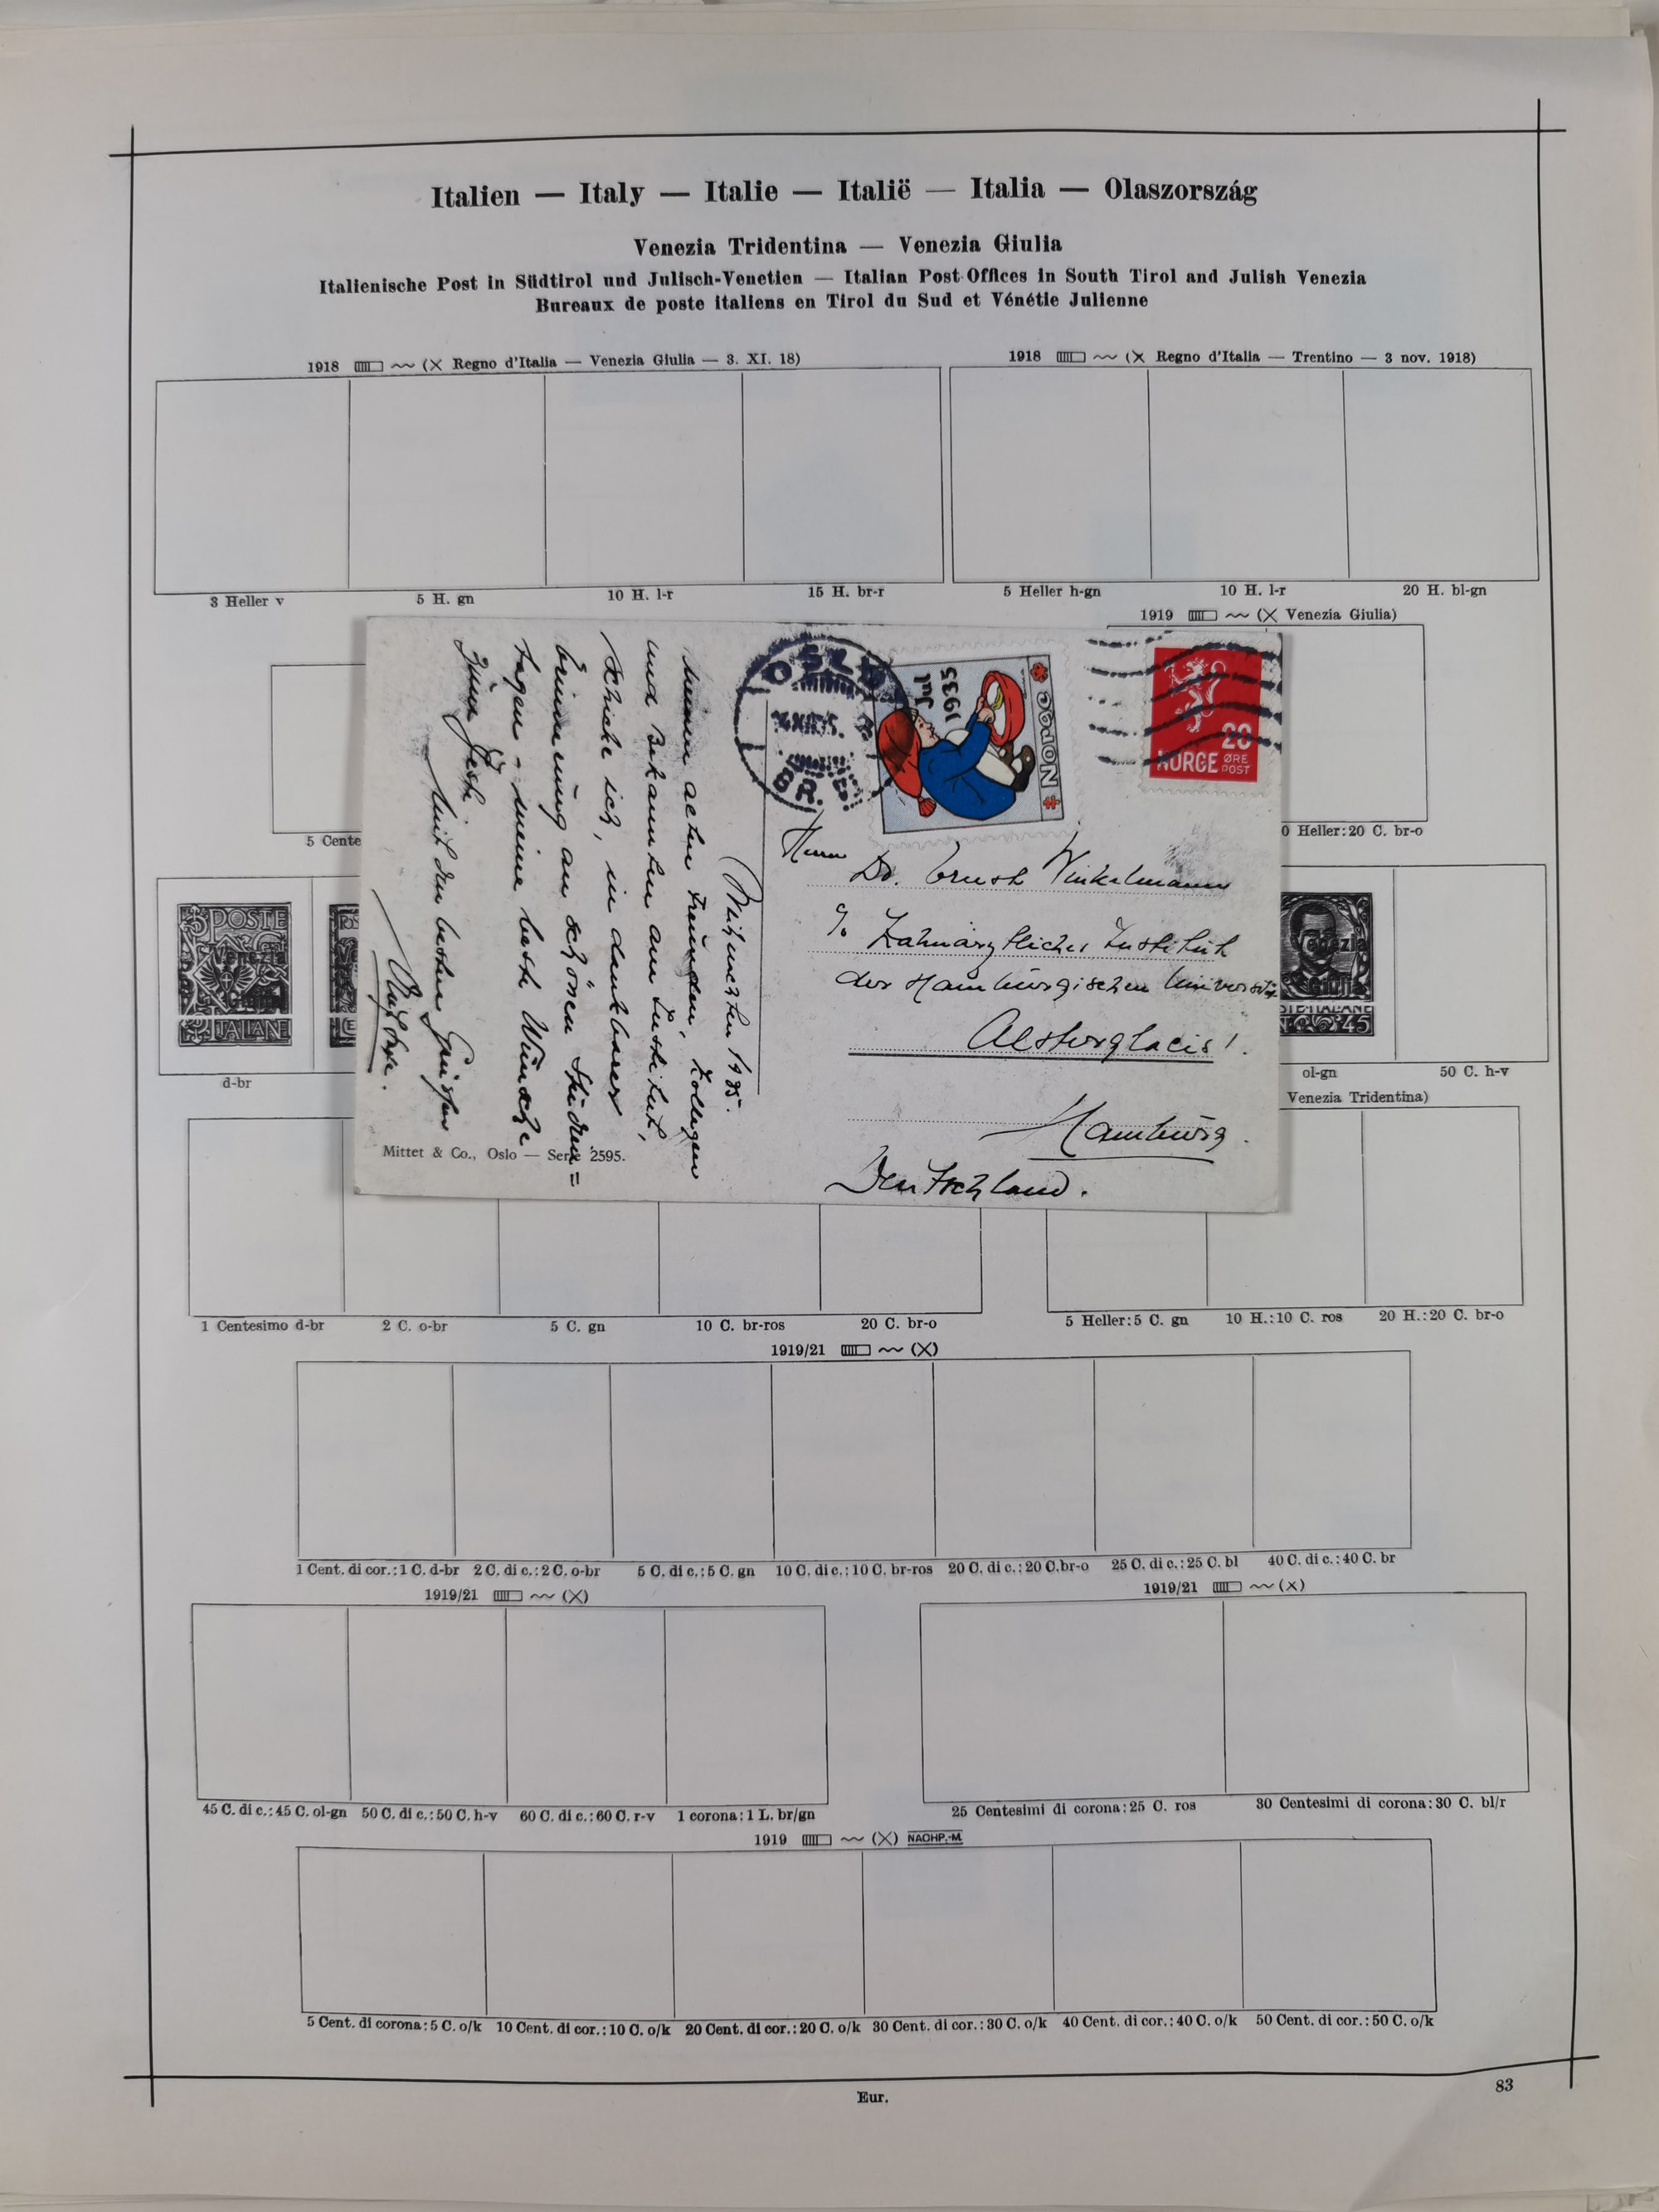 Italien — Italy — Italie — Italië — Italia — Olaszország
Venezia Tridentina — Venezia Giulia
Italienische Post in Südtirol und Julisch-Venetien — Italian Post Offices in South Tirol and Julish Venezia
Bureaux de poste italiens en Tirol du Sud et Vénétie Julienne
1918 (X Regno d'Italia — Venezia Giulia — 3. XI. 18)
1918 (X Regno d'Italia — Trentino — 3 nov. 1918)
3 Heller v 5 H. gn 10 H. l-r 15 H. br-r
5 Heller h-gn 10 H. l-r 20 H. bl-gn
1919 (X Venezia Giulia)
5 Cente
0 Heller:20 C. br-o
POSTE
Venezia
Giulia
ITALIANE
Venezia
Giulia
45
d-br
ol-gn 50 C. h-v
Venezia Tridentina)
OSLO
BR.
Jul
1935
NORGE
20
NORGE ØRE
POST
Weihnachten 1935.
Meinen alten Freunden, Kollegen
und Bekannten am Institut,
schicke ich, in dankbarer
Erinnerung an schönen Studien=
tagen - meine beste Wünsche
zum Feste
Mit den besten Grüssen
Mittet & Co., Oslo — Serie 2595.
Herrn
Dr. Ernst Winkelmann
% Zahnärztliches Institut
der Hamburgischen Universität
Alsterglacis 1.
Hamburg.
Deutschland.
1 Centesimo d-br 2 C. o-br 5 C. gn 10 C. br-ros 20 C. br-o
5 Heller:5 C. gn 10 H.:10 C. ros 20 H.:20 C. br-o
1919/21 (X)
1 Cent. di cor.:1 C. d-br 2 C. di c.:2 C. o-br 5 C. di c.:5 C. gn 10 C. di c.:10 C. br-ros 20 C. di c.:20 C. br-o 25 C. di c.:25 C. bl 40 C. di c.:40 C. br
1919/21 (X)
1919/21 (X)
45 C. di c.:45 C. ol-gn 50 C. di c.:50 C. h-v 60 C. di c.:60 C. r-v 1 corona:1 L. br/gn
25 Centesimi di corona:25 C. ros 30 Centesimi di corona:30 C. bl/r
1919 (X) NACHP.-M.
5 Cent. di corona:5 C. o/k 10 Cent. di cor.:10 C. o/k 20 Cent. di cor.:20 C. o/k 30 Cent. di cor.:30 C. o/k 40 Cent. di cor.:40 C. o/k 50 Cent. di cor.:50 C. o/k
Eur.
83